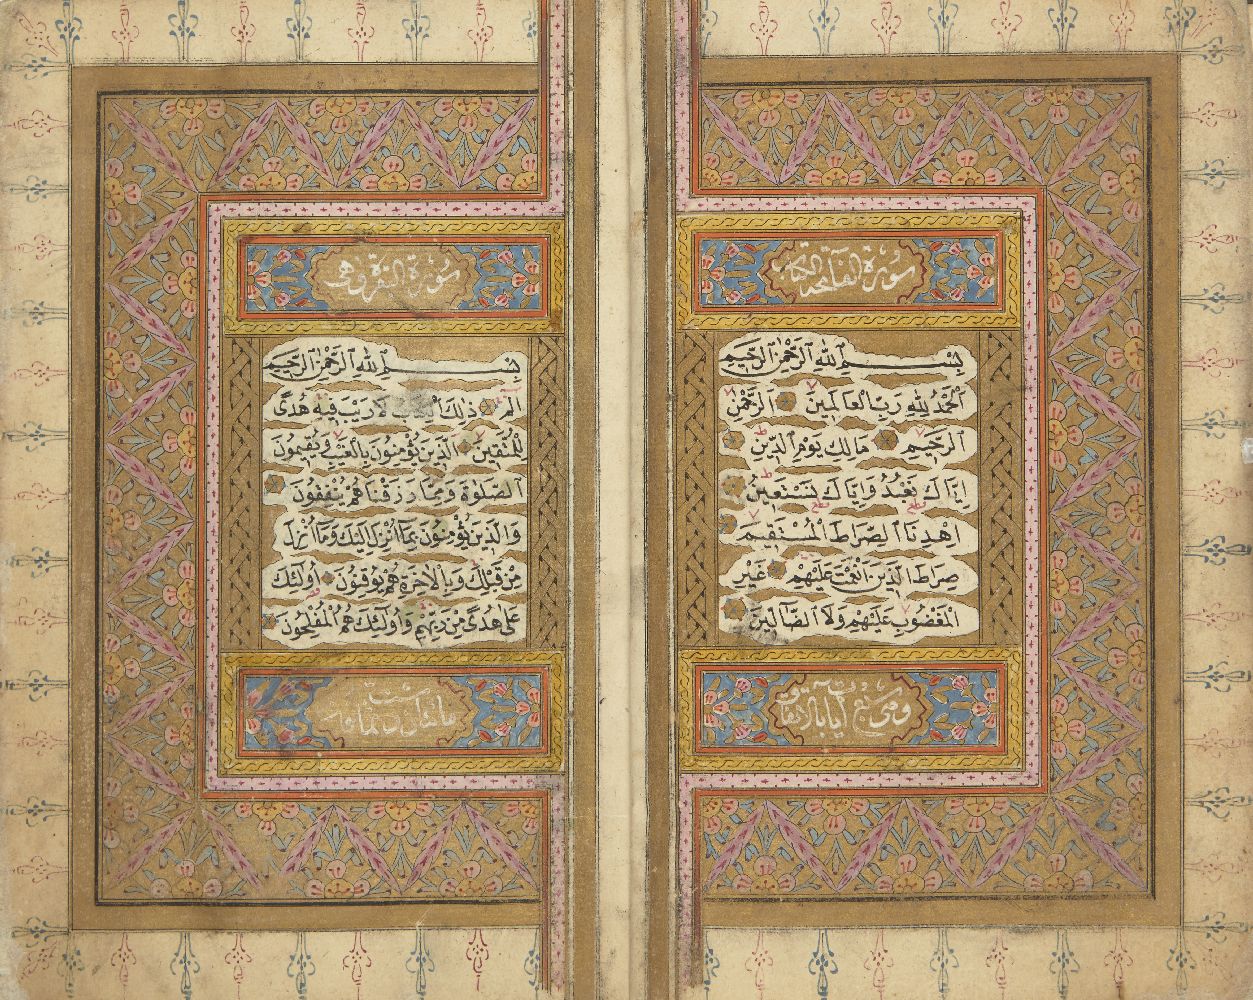 سورة الفاتحة الكتاب
بِسْمِ اللهِ الرَّحْمٰنِ الرَّحِيمِ
اَلْحَمْدُ لِلّٰهِ رَبِّ الْعَالَمِينَ الرَّحْمٰنِ
الرَّحِيمِ مَالِكِ يَوْمِ الدِّينِ
اِيَّاكَ نَعْبُدُ وَاِيَّاكَ نَسْتَعِينُ
اِهْدِنَا الصِّرَاطَ الْمُسْتَقِيمَ
صِرَاطَ الَّذِينَ اَنْعَمْتَ عَلَيْهِمْ غَيْرِ
الْمَغْضُوبِ عَلَيْهِمْ وَلَا الضَّالِّينَ
وهي سبع آيات
سورة البقرة وهي
بِسْمِ اللهِ الرَّحْمٰنِ الرَّحِيمِ
الم ذٰلِكَ الْكِتَابُ لَا رَيْبَ فِيهِ هُدًى
لِلْمُتَّقِينَ الَّذِينَ يُؤْمِنُونَ بِالْغَيْبِ وَيُقِيمُونَ
الصَّلٰوةَ وَمِمَّا رَزَقْنَاهُمْ يُنْفِقُونَ
وَالَّذِينَ يُؤْمِنُونَ بِمَا اُنْزِلَ اِلَيْكَ وَمَا اُنْزِلَ
مِنْ قَبْلِكَ وَبِالْاٰخِرَةِ هُمْ يُوقِنُونَ اُولٰئِكَ
عَلٰى هُدًى مِنْ رَبِّهِمْ وَاُولٰئِكَ هُمُ الْمُفْلِحُونَ